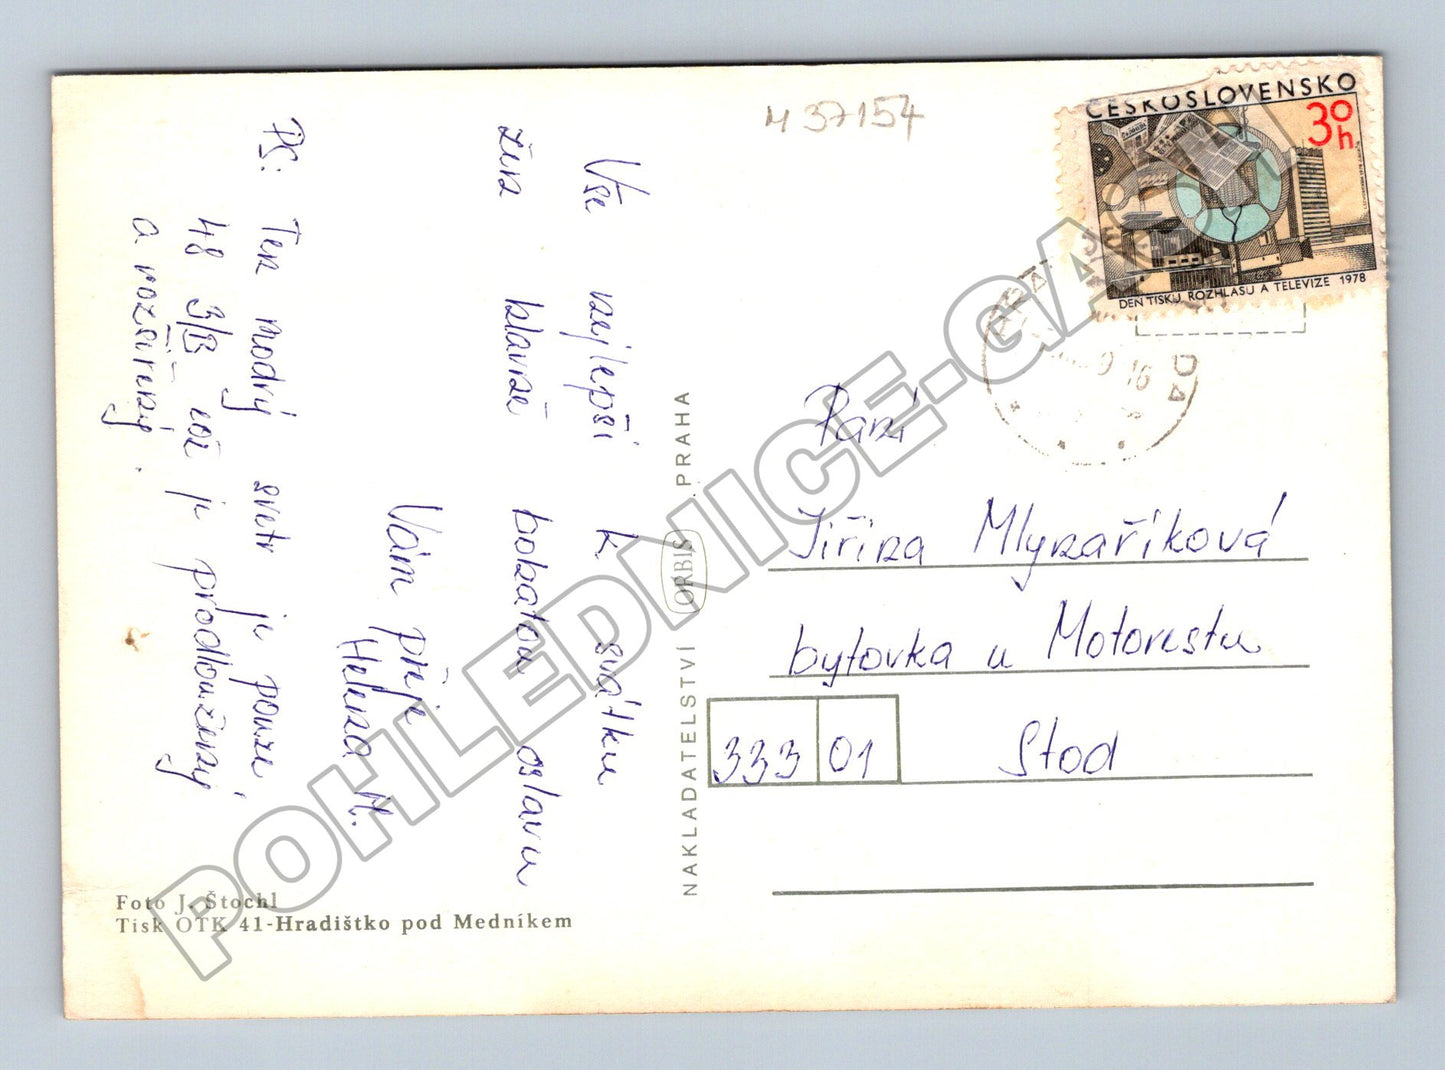 M 37154
ČESKOSLOVENSKO
30 h
DEN TISKU, ROZHLASU A TELEVIZE 1978
Vše nejlepší k svátku
bohatou oslavu
Vám přeje
Helena H.
PS: Ten modrý svetr je pouze
48 3/B což je prodloužený
a rozšířený.
NAKLADATELSTVÍ ORBIS PRAHA
Paní
Jiřina Mlynaříková
bytovka u Motorestu
333 01 Stod
Foto J. Štochl
Tisk OTK 41-Hradištko pod Medníkem
POHLEDNICE-GALA